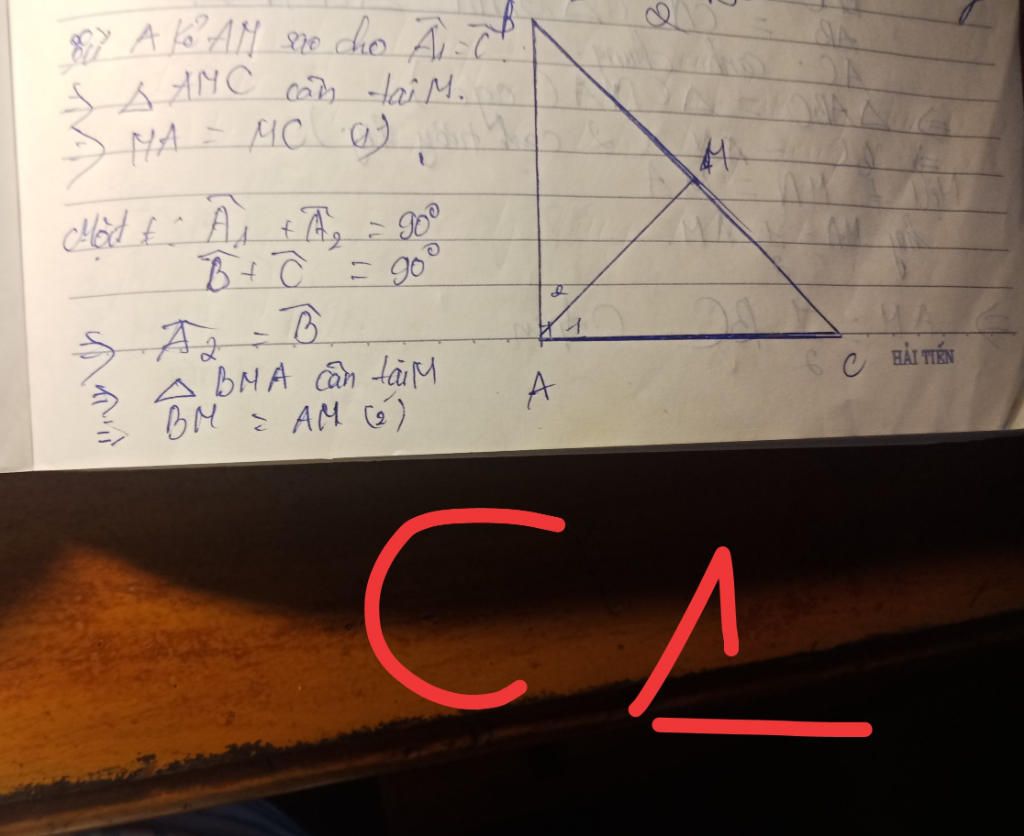 Từ A kẻ AM sao cho Â1 = Ĉ.
=> △ AMC cân tại M.
=> MA = MC (1)
Mặt ≠: Â1 + Â2 = 90°
B̂ + Ĉ = 90°
=> Â2 = B̂
=> △ BMA cân tại M
=> BM = AM (2)
B
M
2
1
A
C
HẢI TIẾN
C1